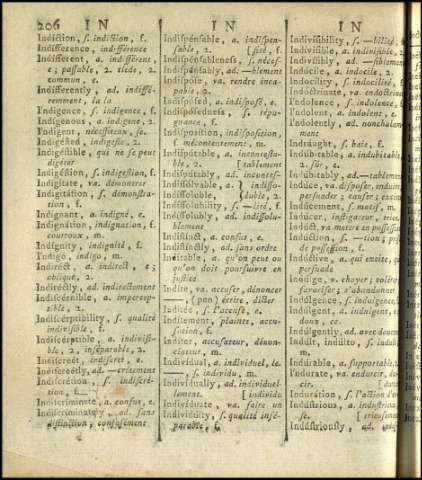 206 I N I N I N
Indiction, s. indiction, f.
Indifference, indifférence
Indifferent, a. indifférent,
e; passable, 2. tiede, 2.
commun, e.
Indifferently, ad. indiffé-
remment, la la
I'ndigence, s. indigence, f.
Indigenous, a. indigene, 2.
I'ndigent, nécessiteux, se.
Indigested, indigeste, 2.
Indigéstible, qui ne se peut
digérer
Indigéstion, s. indigestion, f.
Indigitate, va. démontrer
Indigitátion, s. démonstra-
tion, f.
Indignant, indigné, e.
Indignátion, indignation, f.
courroux, m.
Indígnity, indignité, f.
I'ndigo, indigo, m.
Indiréct, a. indirect, e;
oblique, 2.
Indiréctly, ad. indirectement
Indiscérnible, a. impercep-
tible, 2.
Indiscérptibility, s. qualité
indivisible, f.
Indiscérptible, a. indivisi-
ble, 2, inséparable, 2.
Indiscréet, indiscret, e.
Indiscréetly, ad. —crétement
Indiscrétion, s. indiscré-
tion, f.
Indiscriminate, a. confus, e.
Indiscriminately, ad. sans
distinction, confusément
Indispénsable, a. indispen-
sable, 2. [sité, f.
Indispénsableness, s. néces-
Indispénsably, ad. —blement
Indispóse, va. rendre inca-
pable, 2.
Indispósed, a. indisposé, e.
Indispósedness, s. répu-
gnance, f.
Indisposition, indisposition,
f. mécontentement, m.
Indispútable, a. incontesta-
ble, 2. [tablement
Indispútably, ad. incontes-
Indissólvable, a. } indisso-
Indíssoluble, } luble, 2.
Indissolubility, s. —lité, f.
Indíssolubly, ad. indissolu-
blement
Indistinct, a. confus, e.
Indistínctly, ad. sans ordre
Inditable, a. qu'on peut ou
qu'on doit poursuivre en
justice
Indíte, va. accuser, dénoncer
— (pan) écrire, dicter
Inditée, s. l'accusé, e.
Inditement, plainte, accu-
sation, f.
Inditer, accusateur, dénon-
ciateur, m.
Indivídual, a. individuel, le.
—, s. individu, m.
Indivídually, ad. individuel-
lement. [individu
Indivíduate, va. faire un
Individúity, s. qualité insé-
parable, f.
Indivisibílity, s. —bilité, f.
Indivísible, a. indivisible, 2.
Indivísibly, ad. —siblement
Indócile, a. indocile, 2.
Indocílity, s. indocilité, f.
Indóctrinate, va. endoctriner
I'ndolence, s. indolence, f.
I'ndolent, a. indolent, e.
I'ndolently, ad. nonchalam-
ment
Indráught, s. baie, f.
Indúbitable, a. indubitable,
2. sûr, e.
Indúbitably, ad. —tablement
Indúce, va. disposer, induire,
persuader; causer; exciter
Indúcement, s. motif, m.
Indúcer, instigateur, trice
Indúct, va. mettre en possession
Indúction, s. —tion; prise
de possession, f.
Indúctive, a. qui excite, qui
persuade
Indúlge, v. choyer; tolérer;
favoriser; s'abandonner
Indúlgence, s. indulgence, f.
Indúlgent, a. indulgent, e;
doux, ce.
Indúlgently, ad. avec douceur
Indúlt, indúlto, s. indult,
m.
Indúrable, a. supportable, 2.
I'ndurate, va. endurcir, dur-
cir.
Indurátion, s. l'action d'en-
Indústrious, a. industrieux,
se. [trieusement
Indústriously, ad. indus-